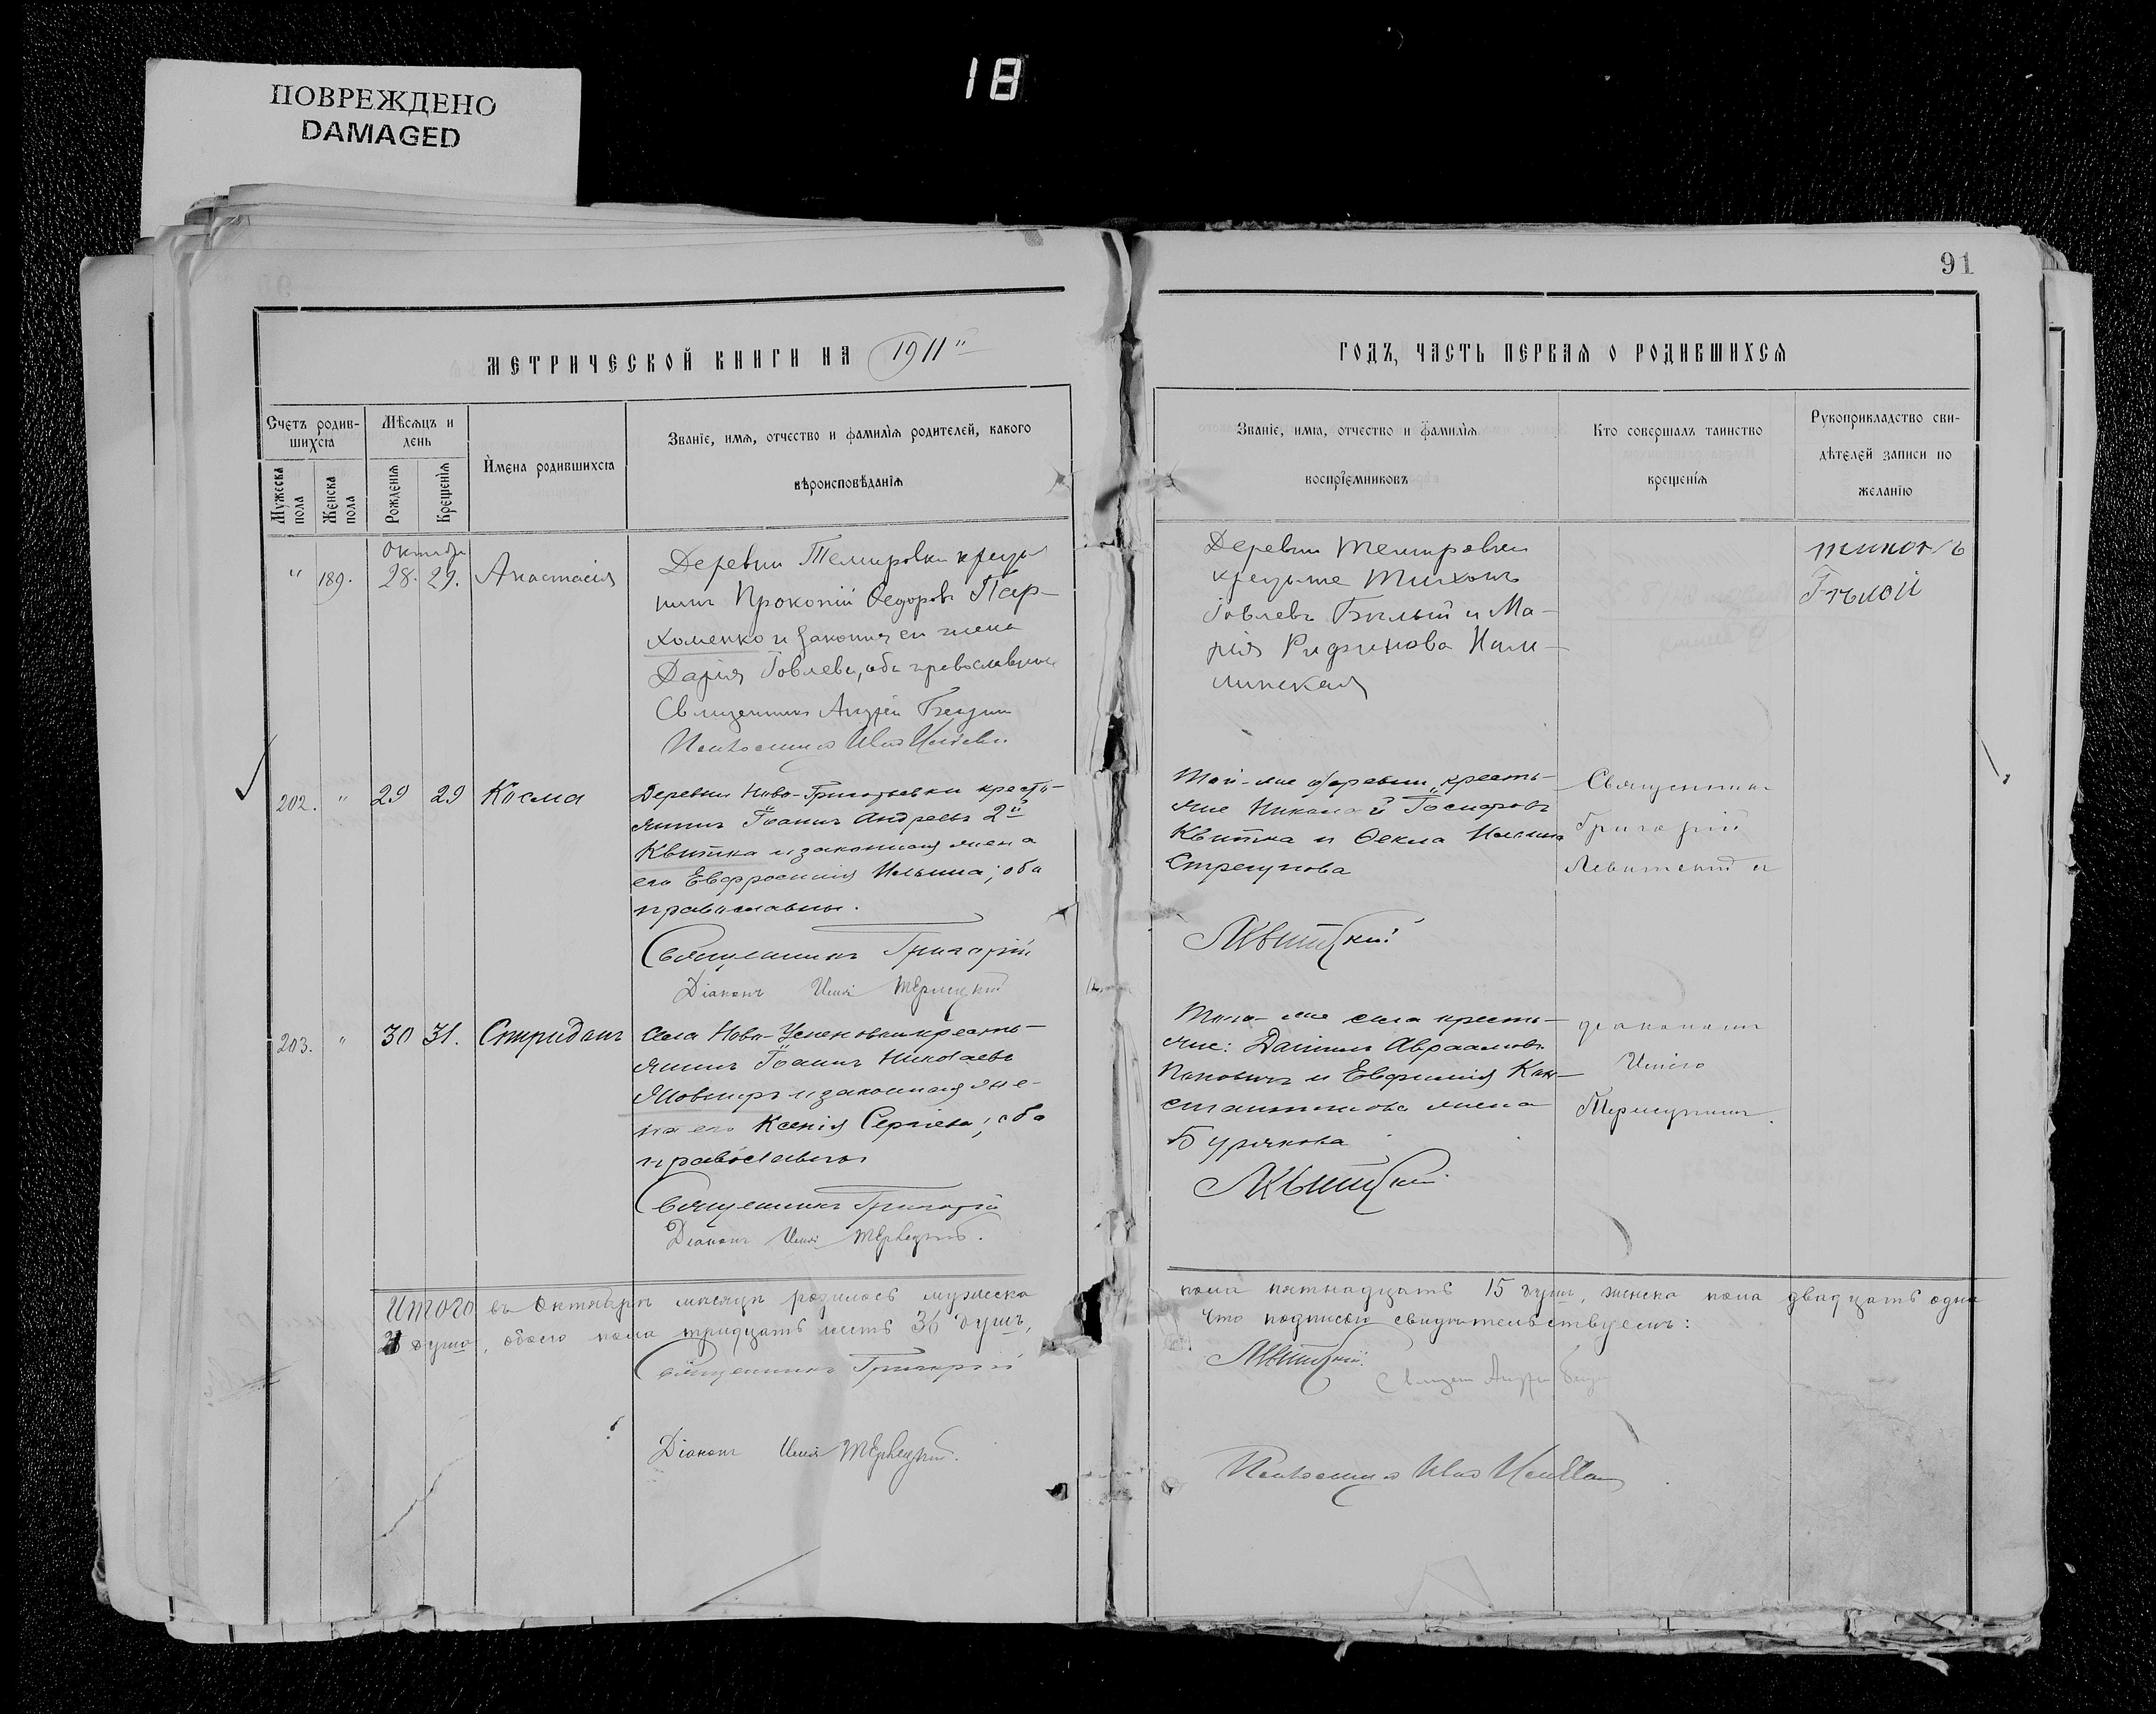 ПОВРЕЖДЕНО
DAMAGED
18
91
МЕТРИЧЕСКОЙ КНИГИ НА 1911
ГОДЪ, ЧАСТЬ ПЕРВАЯ О РОДИВШИХСЯ
Счетъ родив-
шихся
Мѣсяцъ и
день
Имена родившихся
Званіе, имя, отчество и фамилія родителей, какого
вѣроисповѣданія
Мужеска
пола
Женска
пола
Рожденія
Крещенія
Званіе, имя, отчество и фамилія
воспріемниковъ
Кто совершалъ таинство
крещенія
Рукоприкладство сви-
дѣтелей записи по
желанію
Октября
" 189. 28. 29. Анастасія
Деревни Темировки крестья
нинъ Прокопій Ѳедоровъ Пар-
хоменко и законная его жена
Дарія Іовлева, оба православные
Священникъ Андрей
Псаломщикъ
Деревни Темировки
крестьяне Тихонъ
Іовлевъ Бѣлый и Ма-
рія
Тихонъ
Бѣлой
202. " 29 29 Косма
Деревни Ново-Григорьевки кресть-
янинъ Іоаннъ Андреевъ 2й
Квитка и законная жена
его Евфросинія Ильина; оба
православны.
Священникъ Григорій
Діаконъ Илія
Той-же деревни кресть-
яне Николай Іосифовъ
Квитка и Ѳекла
Стрегунова
Левитскій
Священникъ
Григорій
Левитскій и
203. " 30 31. Спиридонъ
Села Ново-Успеновки кресть-
янинъ Іоаннъ Николаевъ
и законная же-
на его Ксенія Сергіева; оба
православны
Священникъ Григорій
Діаконъ Илія
Того-же села кресть-
яне: Даніилъ Авраамовъ
Поповичъ и Евфимія Кон-
стантинова жена
Бурякова
Левитскій
діакономъ
Иліею
Итого въ Октябрѣ мѣсяцѣ родилось мужеска
пола пятнадцать 15 душъ, женска пола двадцать одна
21 душа, обоего пола тридцать шесть 36 душъ,
Что подписью свидѣтельствуемъ:
Священникъ Григорій
Левитскій
Священ Андрей
Діаконъ Илія
Псаломщикъ